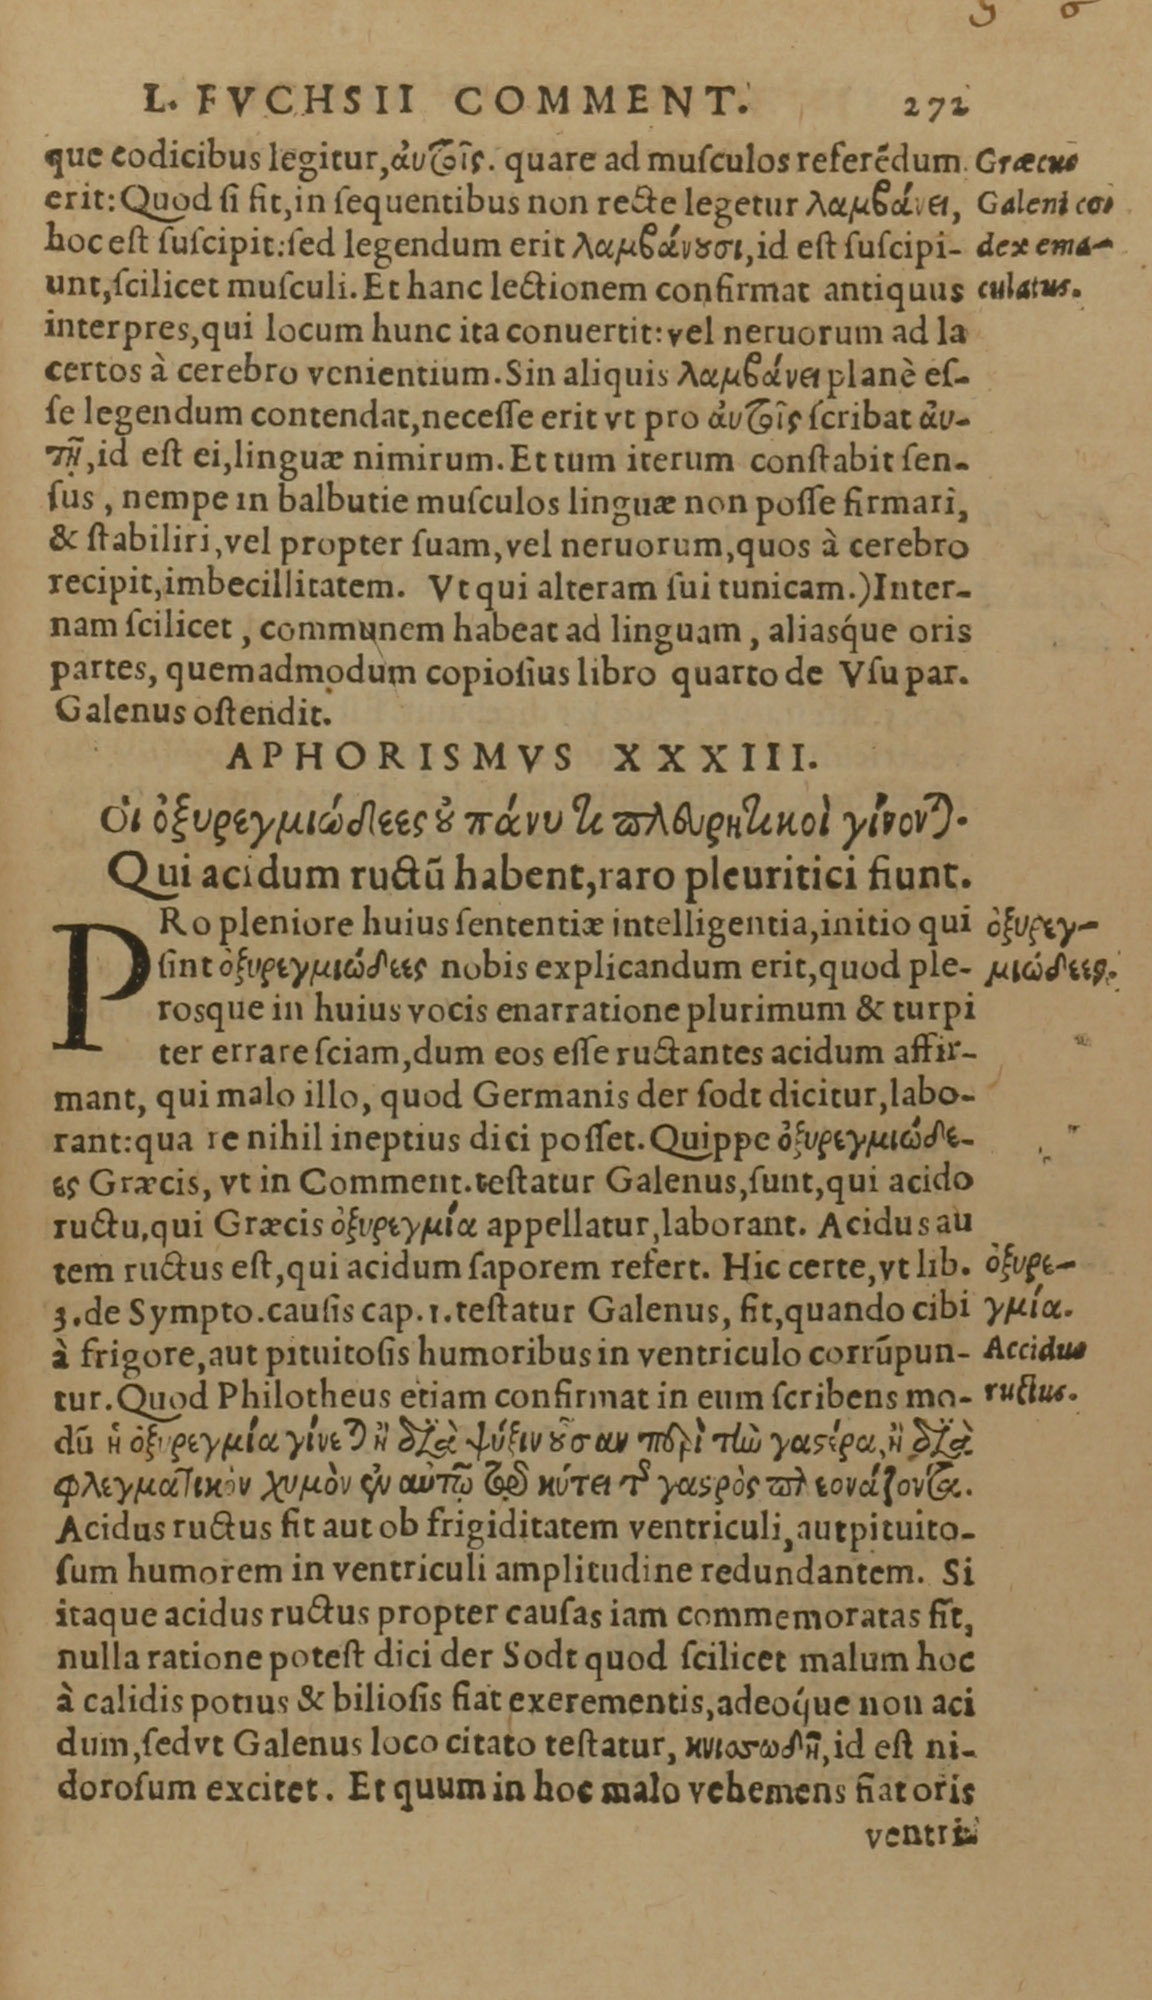 L. FVCHSII COMMENT. 272
que codicibus legitur,αὐτοῖς. quare ad musculos referẽdum
erit: Quod si sit,in sequentibus non recte legetur λαμβάνει,
hoc est suscipit:sed legendum erit λαμβάνουσι,id est suscipi-
unt,scilicet musculi. Et hanc lectionem confirmat antiquus
interpres,qui locum hunc ita conuertit:vel neruorum ad la
certos à cerebro venientium. Sin aliquis λαμβάνει planè es-
se legendum contendat,necesse erit vt pro αὐτοῖς scribat αὐ-
τῇ,id est ei,linguæ nimirum. Et tum iterum constabit sen-
sus , nempe in balbutie musculos linguæ non posse firmari,
& stabiliri,vel propter suam,vel neruorum,quos à cerebro
recipit,imbecillitatem. Vt qui alteram sui tunicam.)Inter-
nam scilicet , communem habeat ad linguam , aliasq́ue oris
partes, quemadmodum copiosius libro quarto de Vsu par.
Galenus ostendit.
Græcus
Galeni co
dex ema-
culatus.
APHORISMVS XXXIII.
Οἱ ὀξυρεγμιώδεες οὐ πάνυ τι πλευρητικοὶ γίνονται.
Qui acidum ructũ habent,raro pleuritici fiunt.
PRo pleniore huius sententiæ intelligentia,initio qui
sint ὀξυρεγμιώδεες nobis explicandum erit,quod ple-
rosque in huius vocis enarratione plurimum & turpi
ter errare sciam,dum eos esse ructantes acidum affir-
mant, qui malo illo, quod Germanis der sodt dicitur,labo-
rant:qua re nihil ineptius dici posset. Quippe ὀξυρεγμιώδε-
ες Græcis, vt in Comment.testatur Galenus,sunt,qui acido
ructu,qui Græcis ὀξυρεγμία appellatur,laborant. Acidus au
tem ructus est,qui acidum saporem refert. Hic certe,vt lib.
3.de Sympto.causis cap.1.testatur Galenus, fit,quando cibi
à frigore,aut pituitosis humoribus in ventriculo corrũpun-
tur. Quod Philotheus etiam confirmat in eum scribens mo-
dũ ἡ ὀξυρεγμία γίνεται ἢ διὰ ψύξιν οὖσαν περὶ τὴν γαστέρα, ἢ διὰ
φλεγματικὸν χυμὸν ἐν αὐτῷ τῷ κύτει τῆς γαστρὸς πλεονάζοντα.
Acidus ructus fit aut ob frigiditatem ventriculi,aut pituito-
sum humorem in ventriculi amplitudine redundantem. Si
itaque acidus ructus propter causas iam commemoratas fit,
nulla ratione potest dici der Sodt quod scilicet malum hoc
à calidis potius & biliosis fiat exerementis,adeoq́ue non aci
dum,sed vt Galenus loco citato testatur, κνισσώδη,id est ni-
dorosum excitet. Et quum in hoc malo vehemens fiat oris
ventri-
ὀξυρεγ-
μιώδεες.
ὀξυρε-
γμία.
Accidus
ructus.